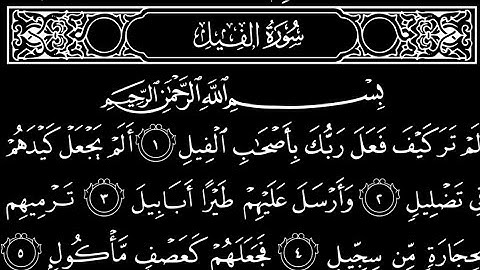 سُورَةُ الفِيلِ
بِسْمِ اللَّهِ الرَّحْمَٰنِ الرَّحِيمِ
لَمْ تَرَ كَيْفَ فَعَلَ رَبُّكَ بِأَصْحَابِ الْفِيلِ ١ أَلَمْ يَجْعَلْ كَيْدَهُمْ
فِي تَضْلِيلٍ ٢ وَأَرْسَلَ عَلَيْهِمْ طَيْرًا أَبَابِيلَ ٣ تَرْمِيهِم
بِحِجَارَةٍ مِّن سِجِّيلٍ ٤ فَجَعَلَهُمْ كَعَصْفٍ مَّأْكُولٍ ٥